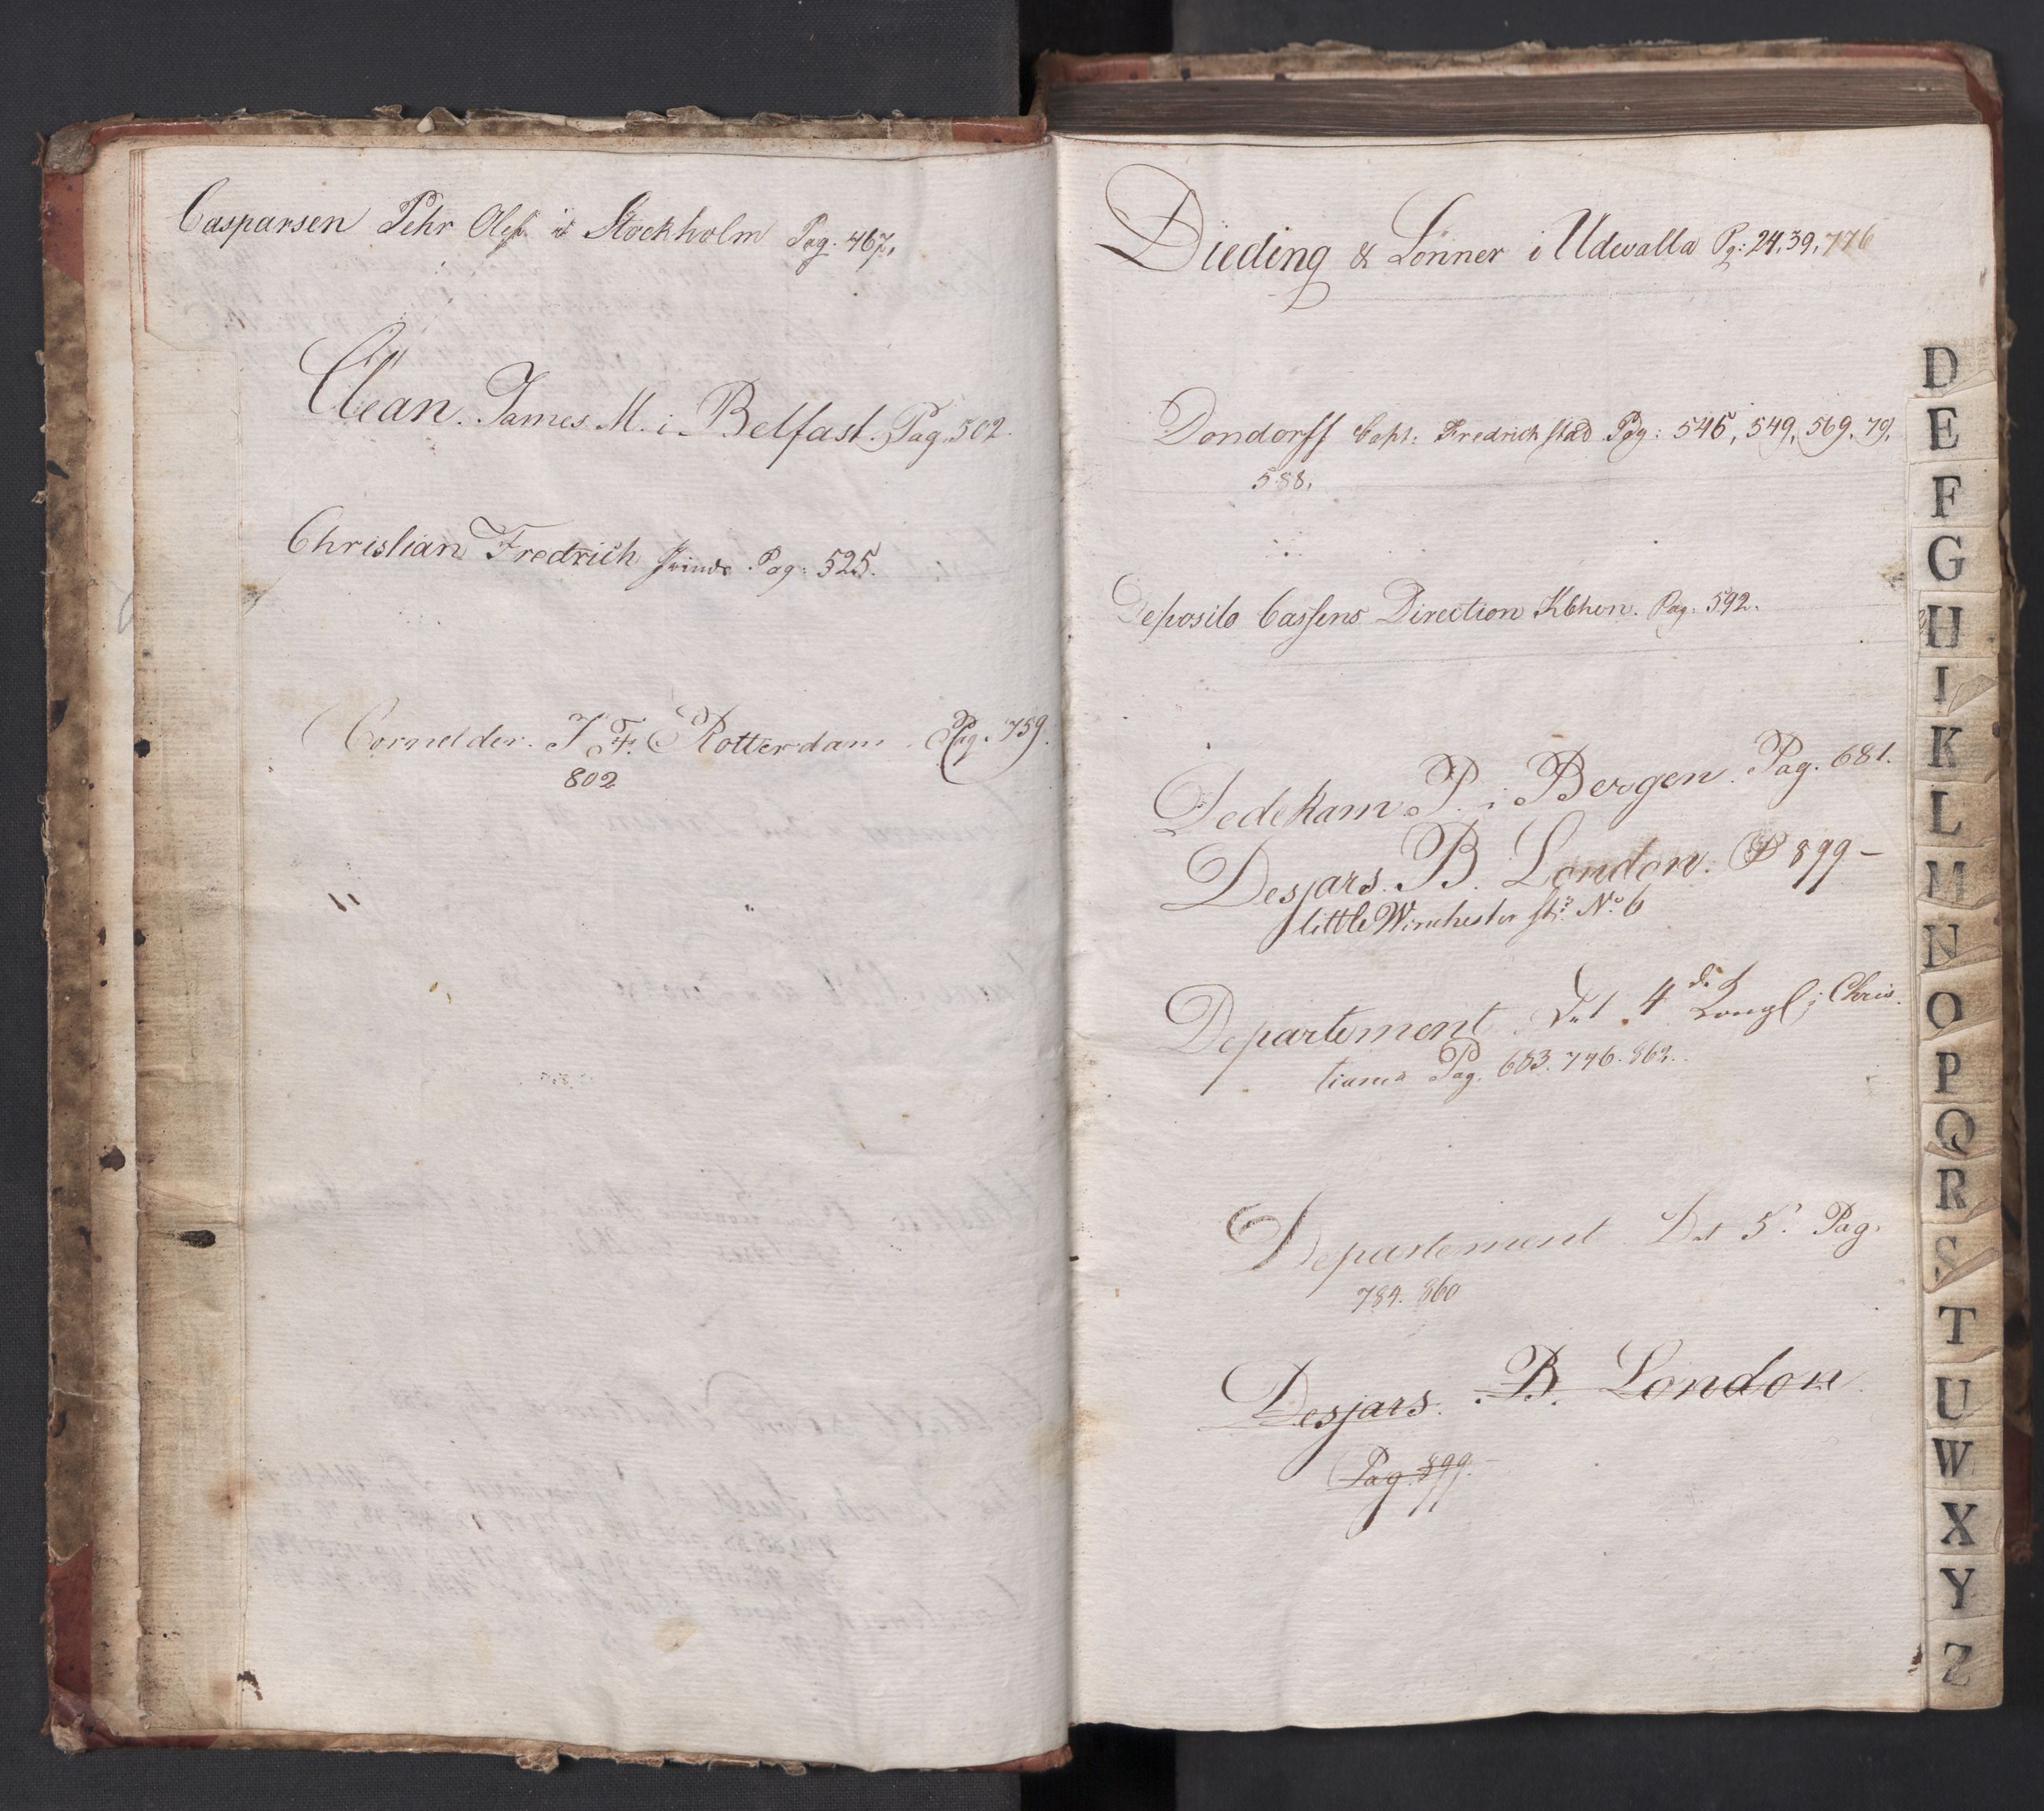 Casparsen Pehr Olof i Stockholm Pag. 467,
Clean. James M. i Belfast. Pag. 502.
Christian Fredrich Prinds Pag: 525.
Cornelder. J. F. Rotterdam. Pag. 759.
802
Dieding & Lönner i Udevalla Pg: 24, 39, 776
Dondorff Capt: Fredrichstad Pag: 546, 549, 569, 79,
588,
Deposito Cassens Direction Kbhvn. Pag. 592.
Dedekam P. i Bergen. Pag. 681.
Desjars. B. London. P 899-
little Winchester str: No. 6
Departement. Det 4de Kongl i Chris
tiania Pag. 683. 746. 862.
Departement Det 5t Pag.
784. 860
Desjars. B. London
Pag. 899.-
D
E
F
G
H
I
K
L
M
N
O
P
Q
R
S
T
U
W
X
Y
Z